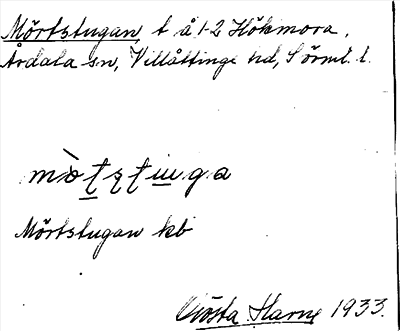 Mörtstugan, t å 1-2 Hökmora,
Årdala sn, Villåttinge hd, Sörml. l.
mò̱tstu̱ga
Mörtstugan kb
Gösta Harne 1933.